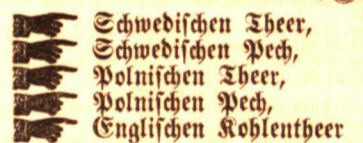 Schwedischen Theer,
Schwedischen Pech,
Polnischen Theer,
Polnischen Pech,
Englischen Kohlentheer